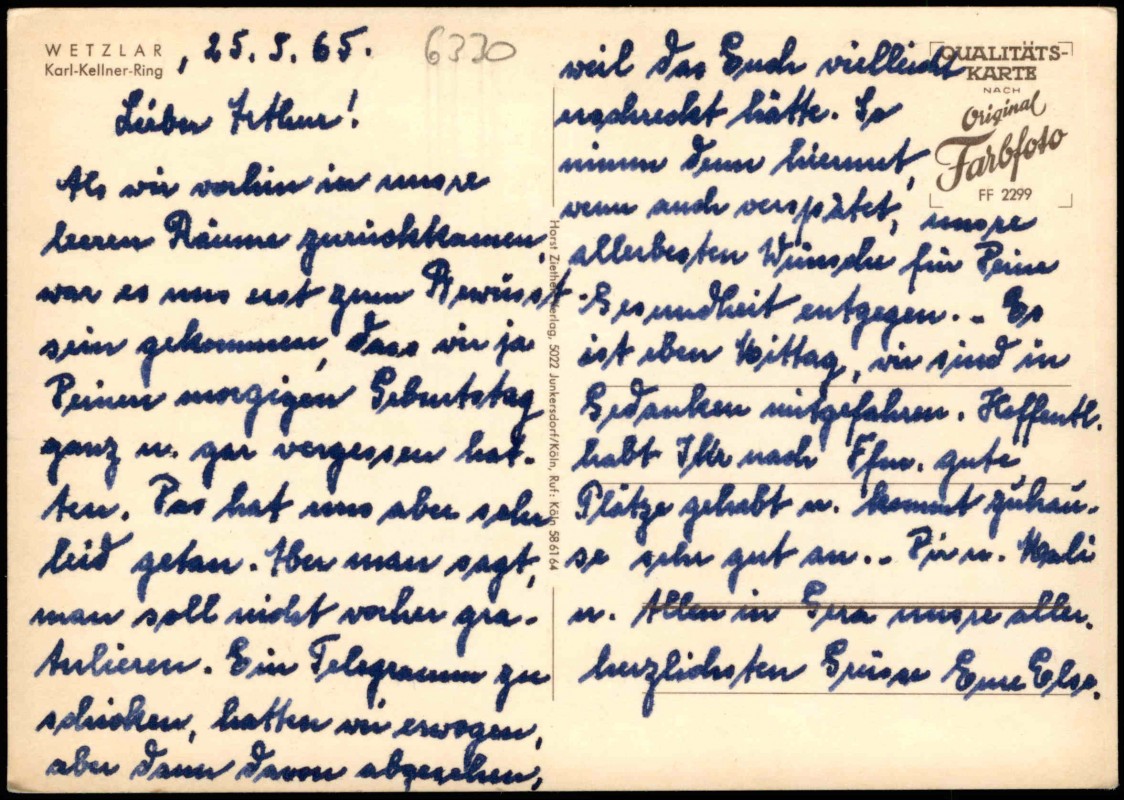 WETZLAR
Karl-Kellner-Ring
, 25. 5. 65.
6330
Lieber Arthur!
Als wir vorhin in unsre
leeren Räume zurückkamen,
war es uns erst zum Bewusst-
sein gekommen, dass wir ja
Deinen morgigen Geburtstag
ganz u. gar vergessen hat-
ten. Das hat uns aber sehr
leid getan. Aber man sagt,
man soll nicht vorher gra-
tulieren. Ein Telegramm zu
schicken, hatten wir erwogen,
aber dann davon abgesehen,
Horst Ziethen Verlag, 5022 Junkersdorf/Köln, Ruf: Köln 58 61 64
weil das Euch vielleicht
erschreckt hätte. So
nimm denn hiermit,
wenn auch verspätet, unsre
allerbesten Wünsche für Deine
Gesundheit entgegen. - Es
ist eben Mittag, wir sind in
Gedanken mitgefahren. Hoffentl.
habt Ihr nach Ffm. gute
Plätze gehabt u. kommt zuhau-
se sehr gut an. - Dir u. Mali
u. Allen in Gera unsre aller-
herzlichsten Grüsse Eure Else.
QUALITÄTS-
KARTE
NACH
Original
Farbfoto
FF 2299